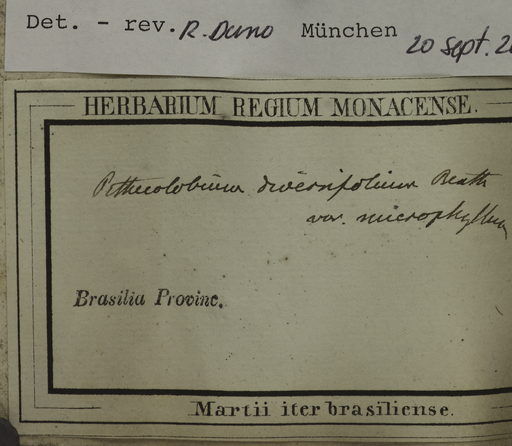 Det. - rev. R. Duno München 20 sept.
HERBARIUM REGIUM MONACENSE.
Pithecolobium diversifolium Benth
var. microphyllum
Brasilia Provinc.
Martii iter brasiliense.